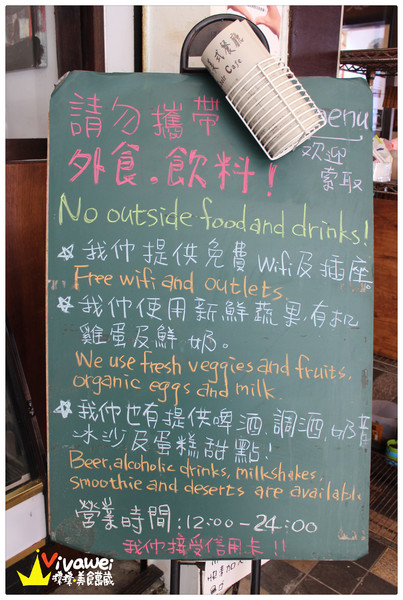 美式餐廳
Cafe
menu
歡迎
索取
請勿攜帶
外食。飲料！
No outside food and drinks!
☆我们提供免費 wifi及插座。
Free wifi and outlets.
☆我们使用新鮮蔬果,有机
雞蛋及鮮奶。
We use fresh veggies and fruits,
organic eggs and milk.
☆我们也有提供啤酒.調酒.奶昔
冰沙及蛋糕甜點!
Beer, alcoholic drinks, milkshakes,
smoothie and deserts are available.
營業時間:12:00-24:00
我们接受信用卡!!
Vivawei